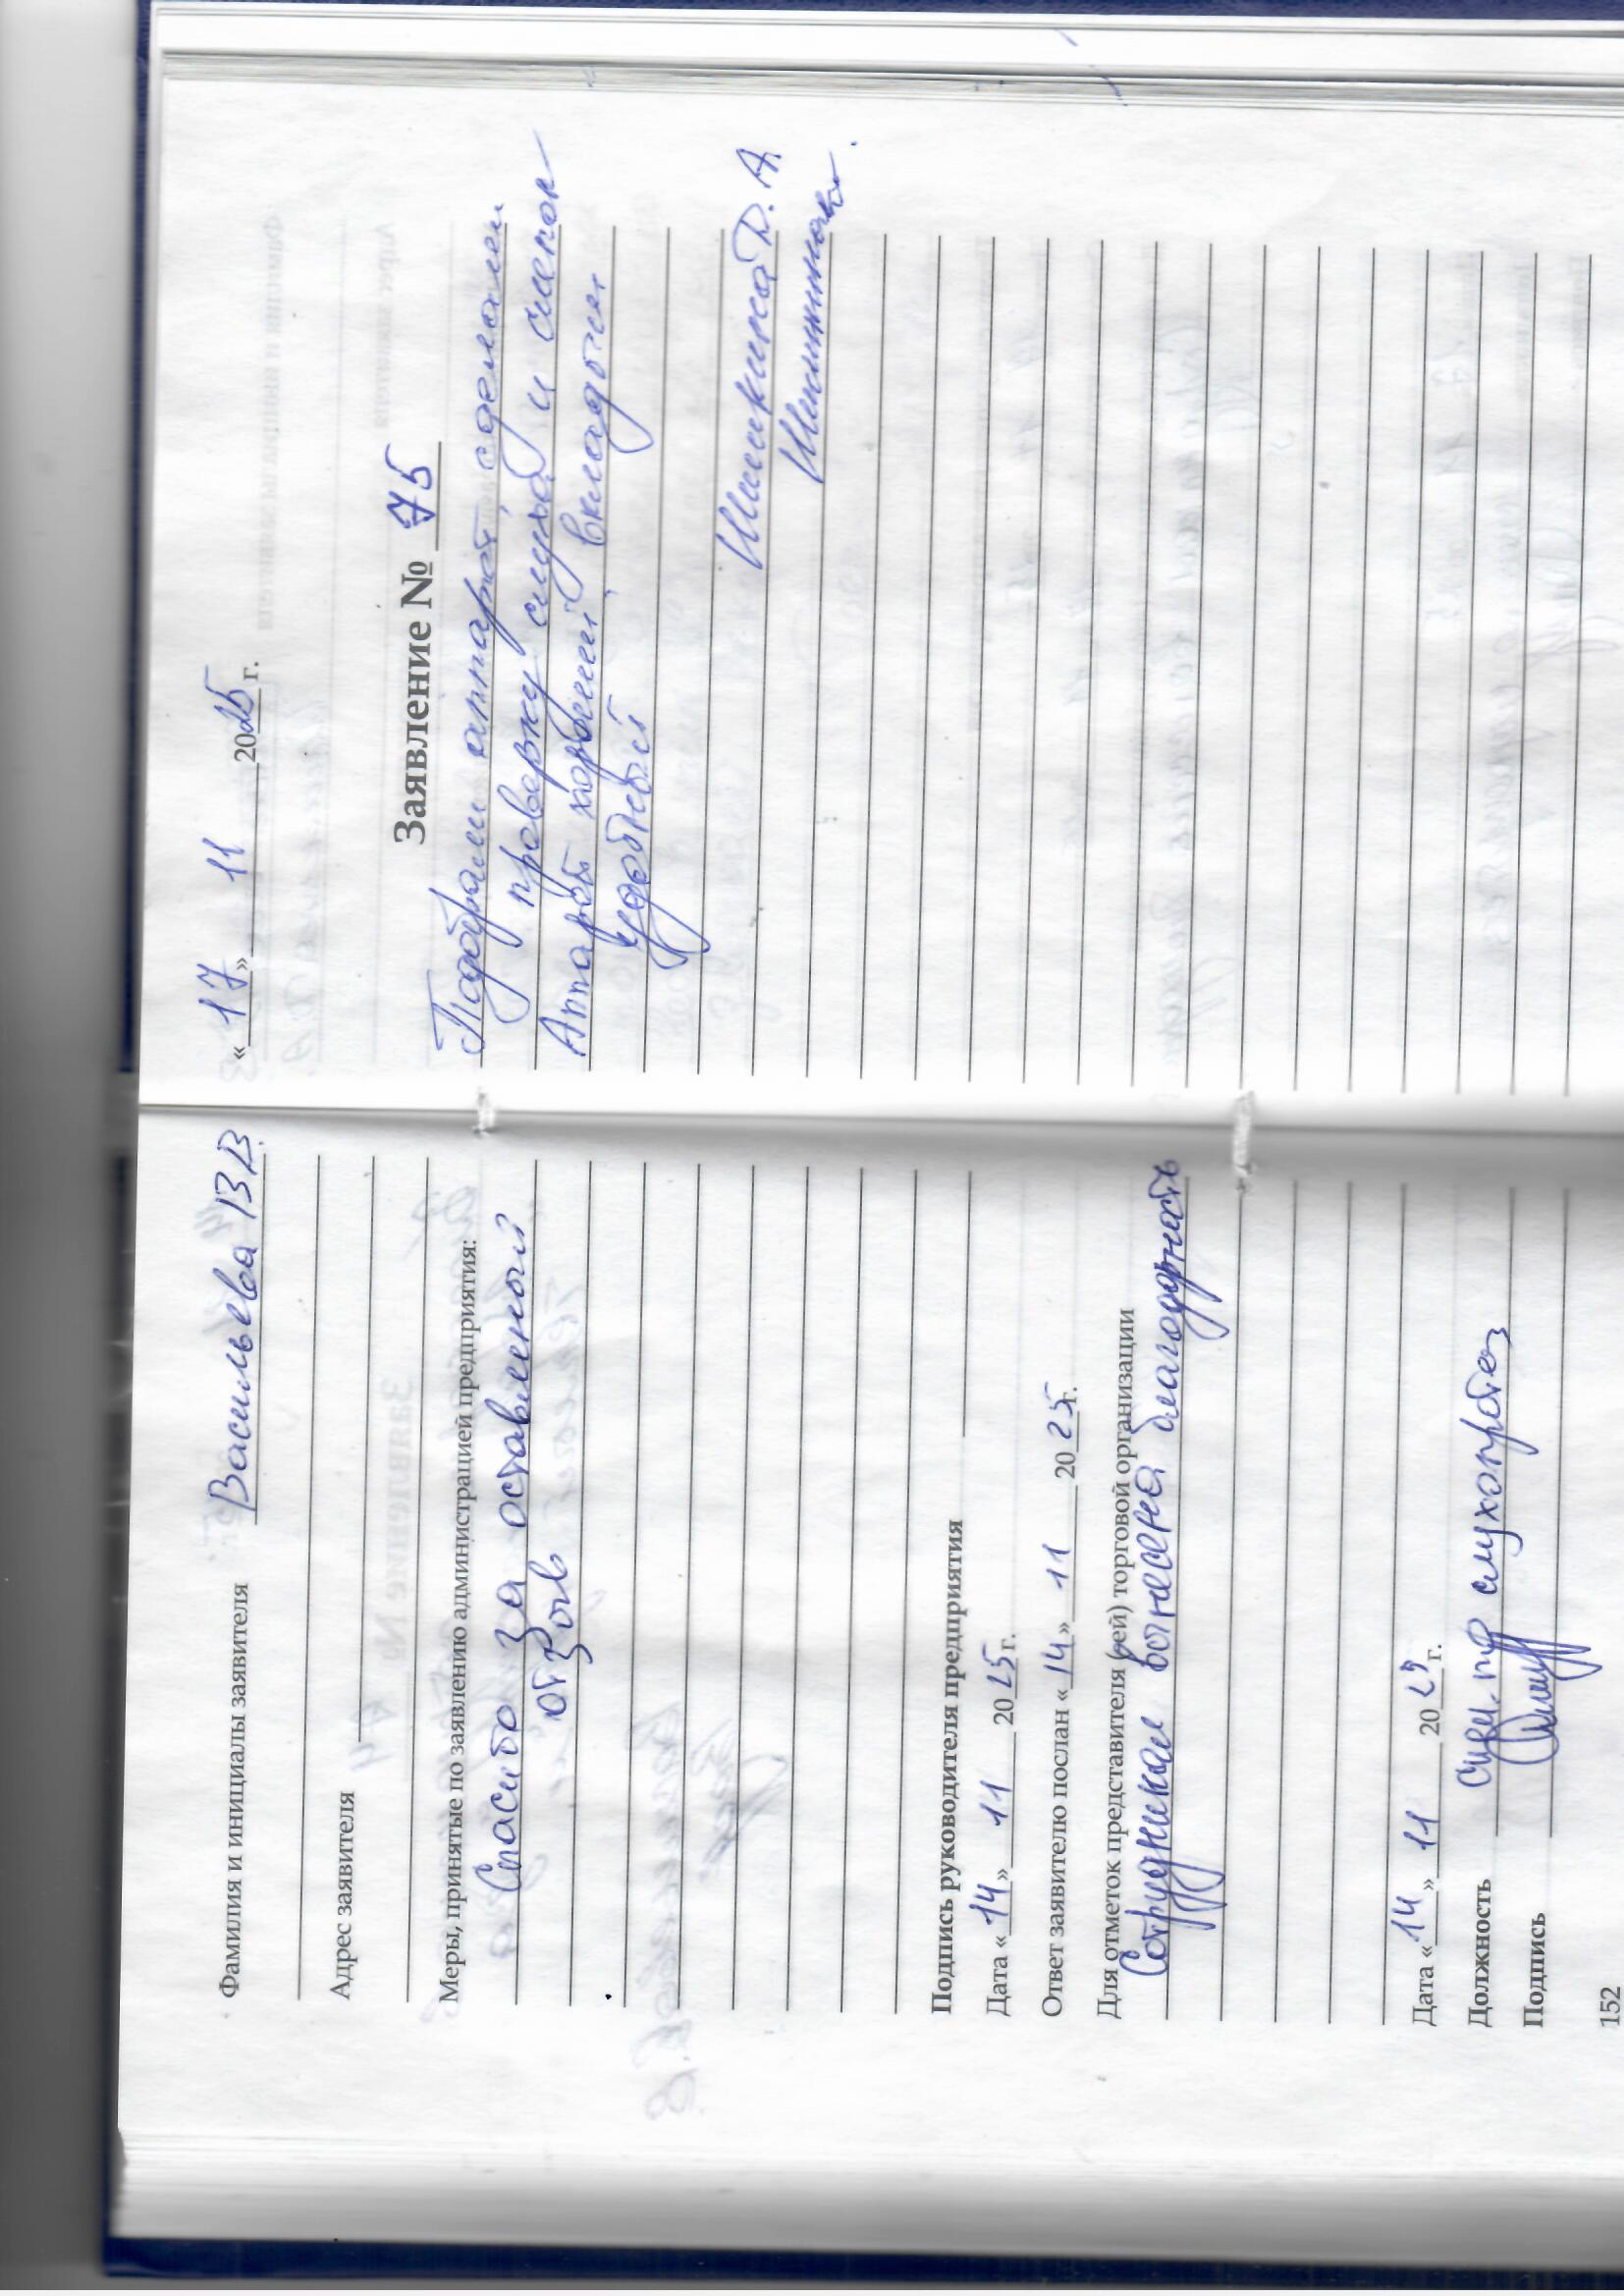 Фамилия и инициалы заявителя Васильева В В.
Адрес заявителя
Меры, принятые по заявлению администрацией предприятия:
Спасибо за оставленный
отзыв
Подпись руководителя предприятия
Дата «14» 11 2025 г.
Ответ заявителю послан «14» 11 2025 г.
Для отметок представителя (ей) торговой организации
Сотрудникам вынесена благодарность
Дата «14» 11 2025 г.
Должность спец. по слухопротез
Подпись
152
«17» 11 2025 г.
Заявление № 75
Подобрали аппарат, сделали
проверку слуха и слепок
Аппарат хороший, вкладыш
удобный
Шишкина Д. А